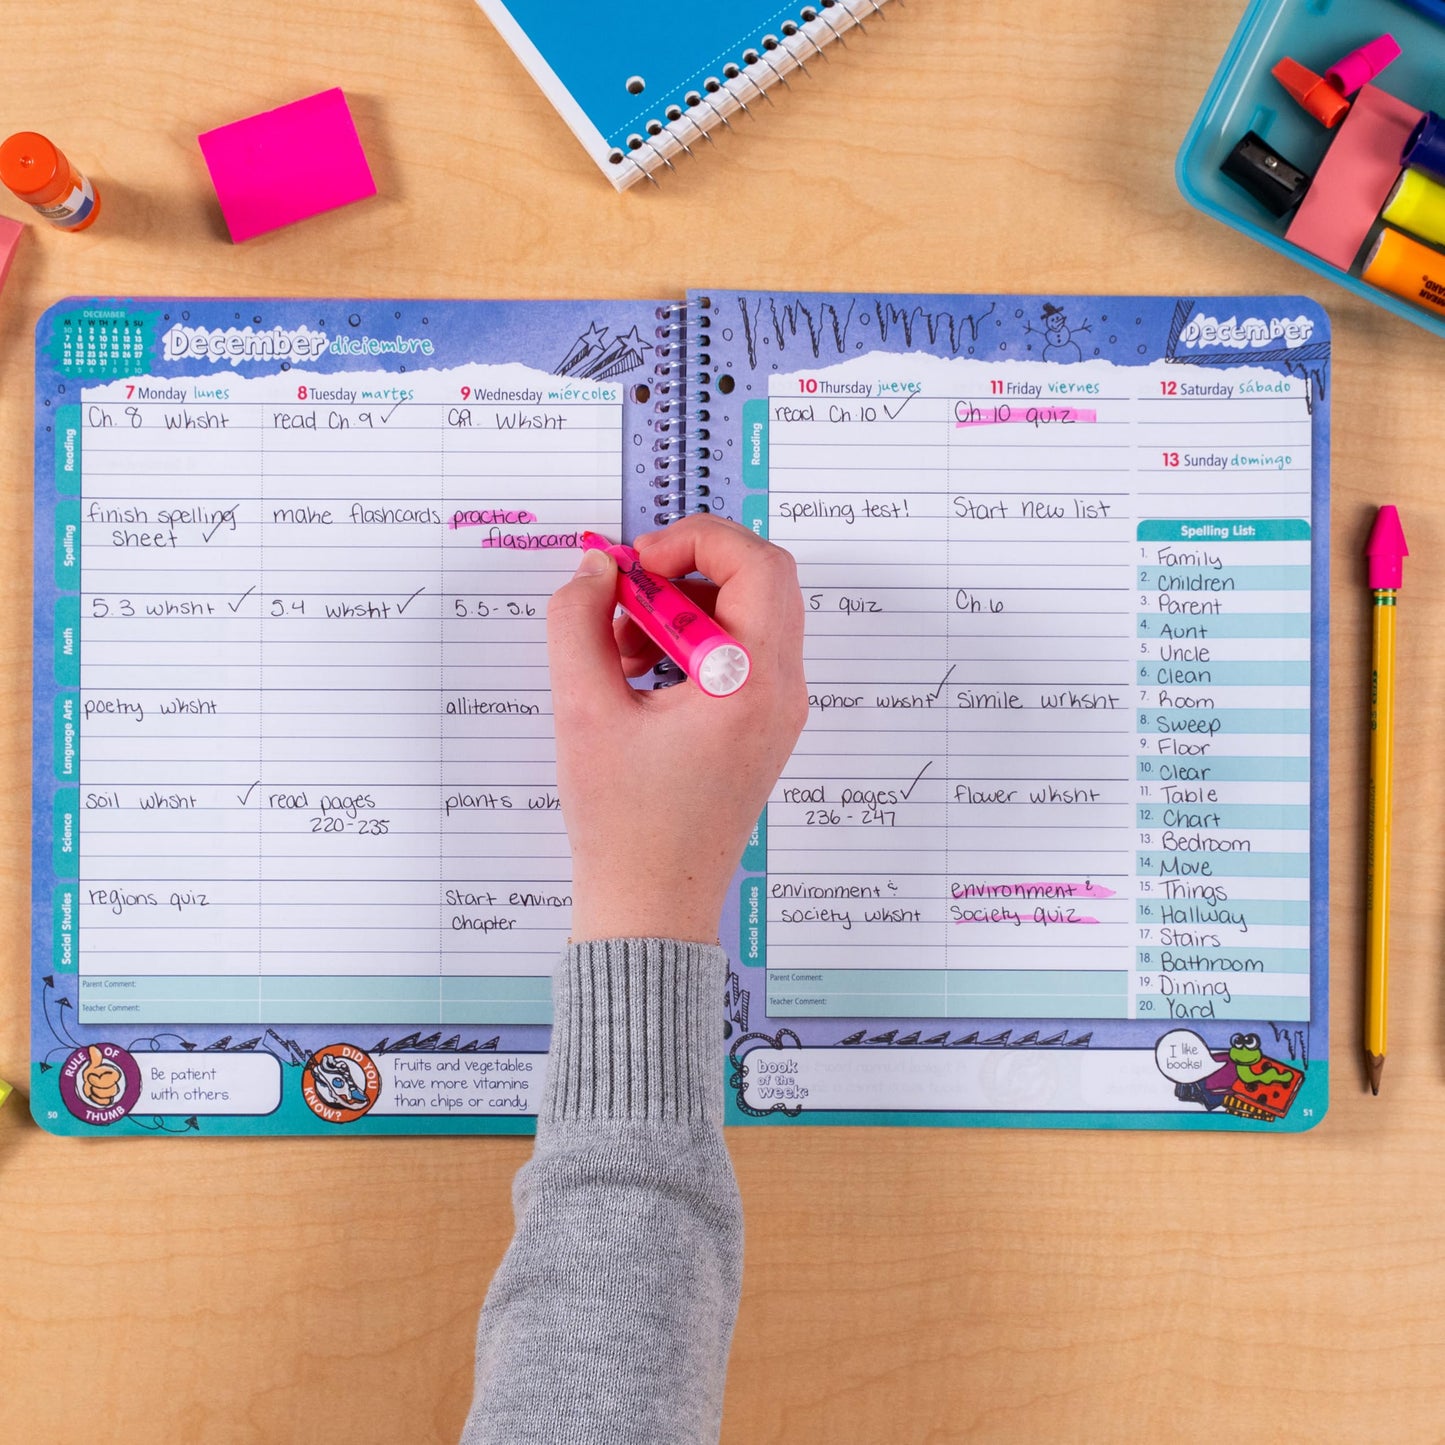 DECEMBER
M T W TH F S SU
30 1 2 3 4 5 6
7 8 9 10 11 12 13
14 15 16 17 18 19 20
21 22 23 24 25 26 27
28 29 30 31 1 2 3
4 5 6 7 8 9 10
December diciembre
7 Monday lunes
8 Tuesday martes
9 Wednesday miércoles
Reading
Ch. 8 wksht
read Ch. 9 ✓
Ch 9. wksht
Spelling
finish spelling
sheet ✓
make flashcards
practice
flashcards
Math
5.3 wksht ✓
5.4 wksht ✓
5.5-5.6
Language Arts
poetry wksht
alliteration
Science
soil wksht ✓
read pages
220-235
plants wk
Social Studies
regions quiz
Start environ
Chapter
Parent Comment:
Teacher Comment:
RULE OF THUMB
Be patient
with others.
DID YOU KNOW?
Fruits and vegetables
have more vitamins
than chips or candy.
50
December
10 Thursday jueves
11 Friday viernes
12 Saturday sábado
13 Sunday domingo
Reading
read Ch. 10 ✓
Ch. 10 quiz
ng
spelling test!
Start new list
5 quiz
Ch. 6
aphor wksht ✓
simile wrksht
Sci
read pages ✓
236-247
flower wksht
Social Studies
environment &
society wksht
environment &
Society quiz
Parent Comment:
Teacher Comment:
Spelling List:
1. Family
2. Children
3. Parent
4. Aunt
5. Uncle
6. Clean
7. Room
8. Sweep
9. Floor
10. Clear
11. Table
12. Chart
13. Bedroom
14. Move
15. Things
16. Hallway
17. Stairs
18. Bathroom
19. Dining
20. Yard
book
of the
week:
I like
books!
51
Sharpie